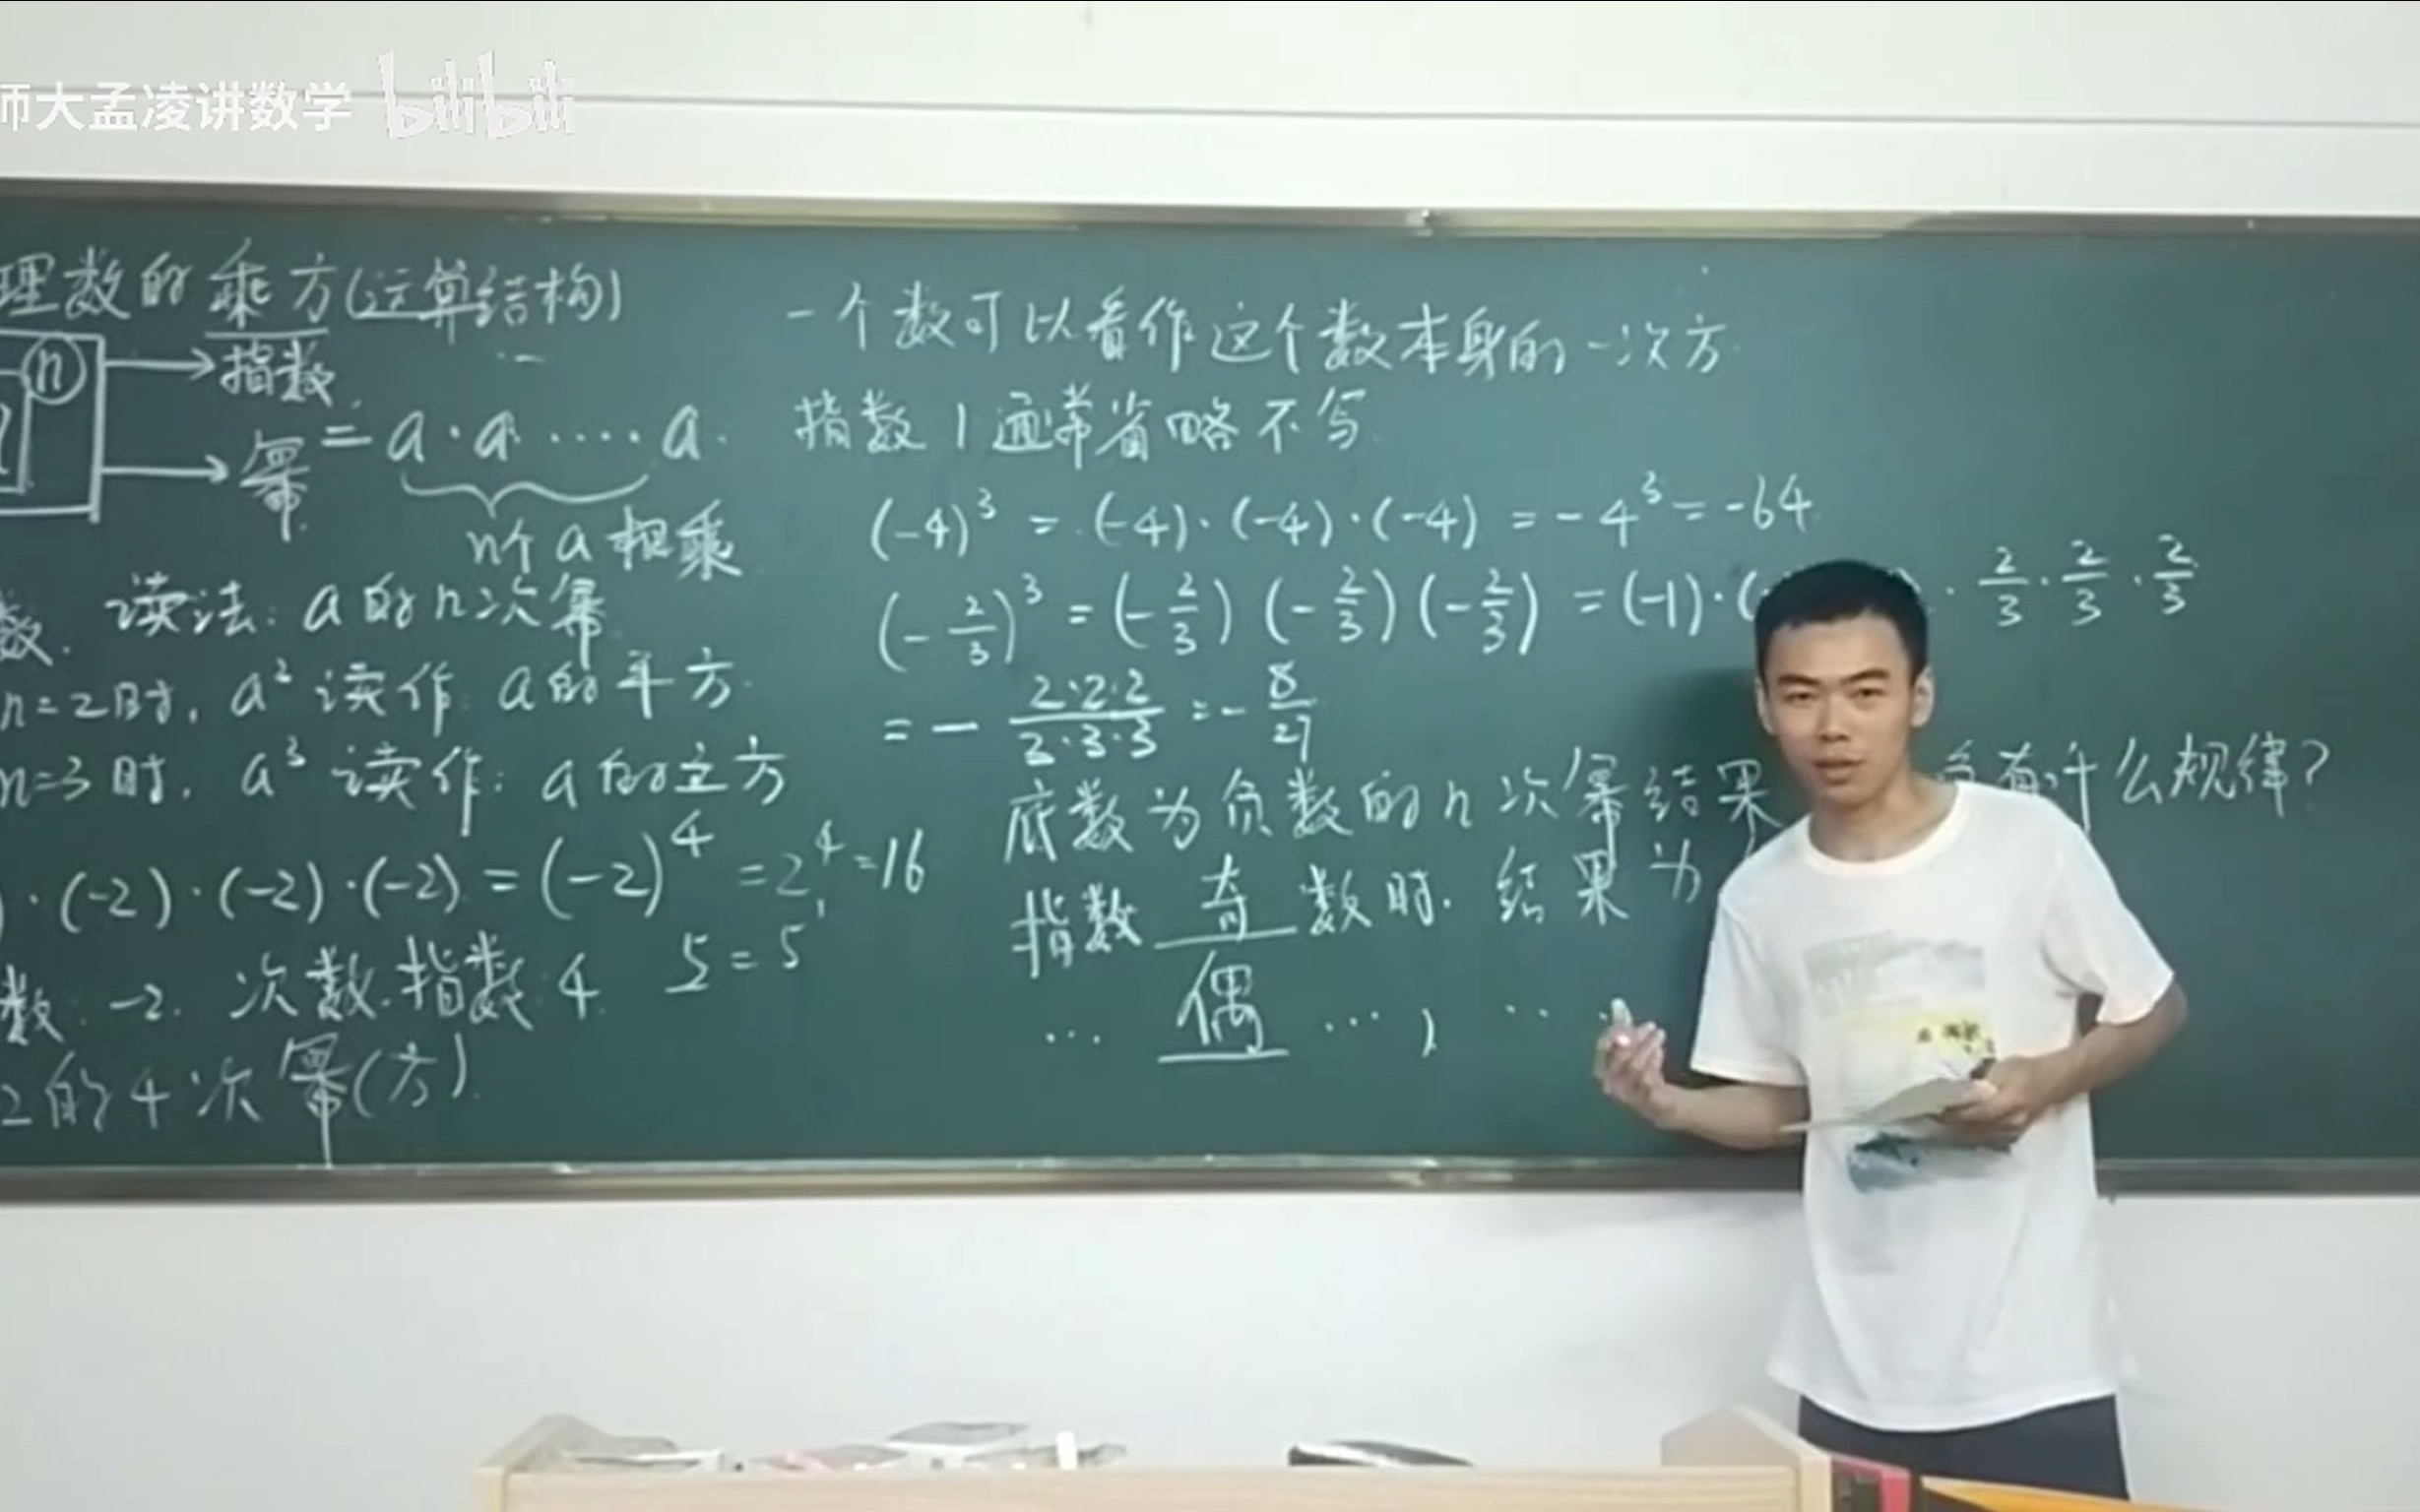 师大孟凌讲数学 bilibili
理数的乘方(运算结构)
n → 指数
→ 幂 = a·a·····a.
n个a相乘
数. 读法: a的n次幂
n=2时, a² 读作: a的平方.
n=3时, a³ 读作: a的立方
)·(-2)·(-2)·(-2) = (-2)⁴ = 2⁴ = 16
数: -2. 次数.指数: 4 5 = 5¹
2的4次幂(方).
一个数可以看作这个数本身的一次方.
指数1通常省略不写.
(-4)³ = (-4)·(-4)·(-4) = -4³ = -64
(-2/3)³ = (-2/3)(-2/3)(-2/3) = (-1)·( · 2/3·2/3·2/3
= - 2·2·2/3·3·3 = - 8/27
底数为负数的n次幂结果 有什么规律?
指数 奇 数时. 结果为
... 偶 ... , ...